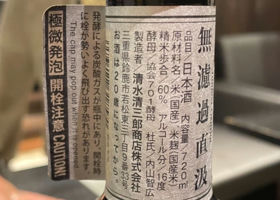 無濾過直汲
品目 日本酒 内容量720ml
原材料名 米(国産)・米麹(国産米)
精米歩合 60% アルコール分 16度
酵母 協会701酵母 杜氏 内山智広
製造者 清水清三郎商店株式会社
三重県鈴鹿市若松東三丁目9番33号
お酒は20歳になってから
極微発泡 開栓注意 CAUTION!
The cap may pop out
発酵による炭酸ガスが瓶中にあり、開栓時
に栓が勢いよく飛び出す恐れがあります